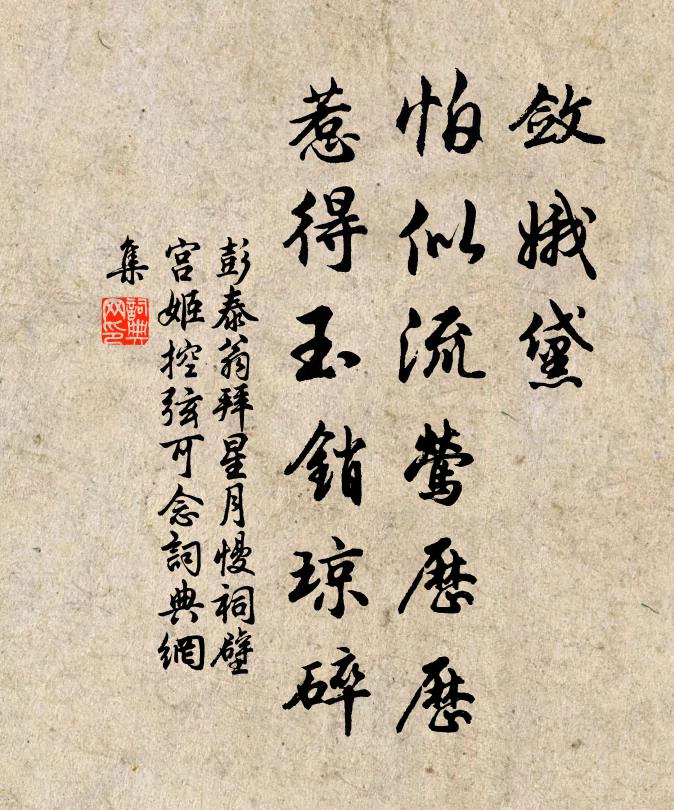 斂娥黛
怕似流鶯歷歷
惹得玉銷瓊碎
彭泰翁拜星月慢祠壁
宮姬控弦可念詞典網
集
詞典
网印